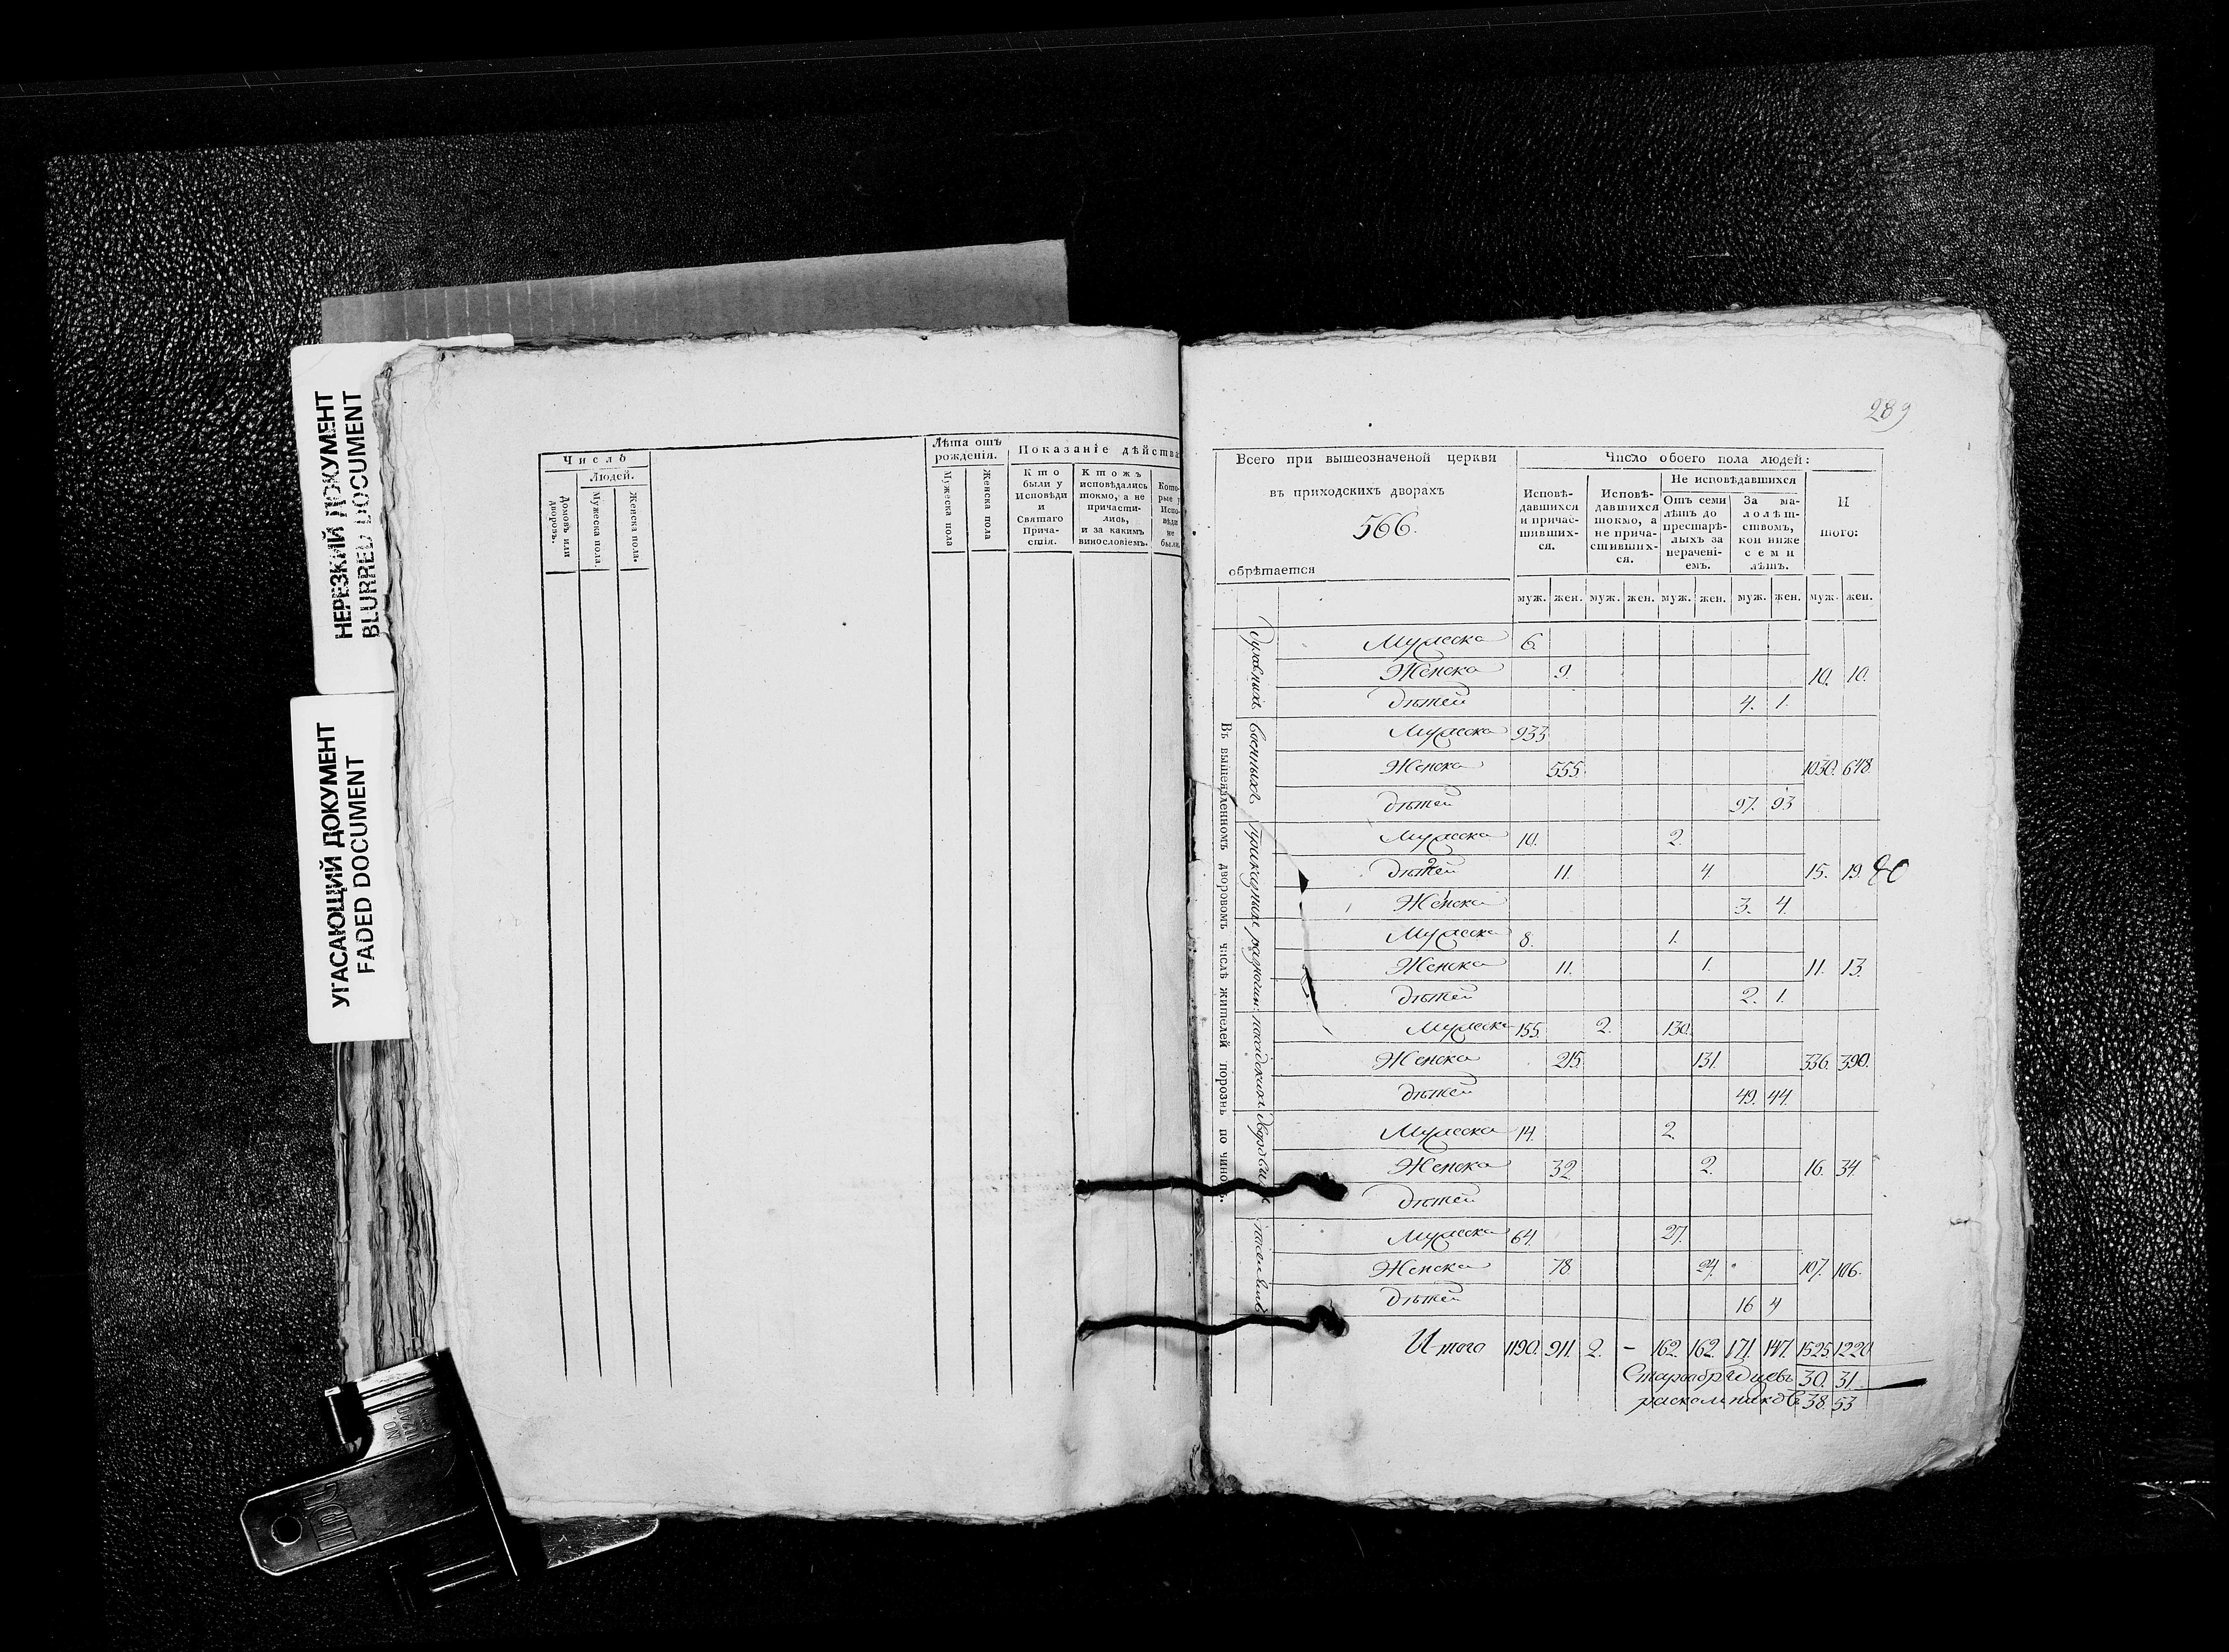 НЕРЕЗКИЙ ДОКУМЕНТ
BLURRED DOCUMENT
УГАСАЮЩИЙ ДОКУМЕНТ
FADED DOCUMENT
NO.
1240
Число
Людей.
Домовъ или дворовъ.
Мужеска пола.
Женска пола.
Лѣта отъ рожденія.
Мужеска пола
Женска пола
Показаніе дѣйства
Кто были у Исповѣди и Святаго Прича-стія.
Ктожъ исповѣдались токмо, а не причасти-лись, и за какимъ винословіемъ.
Кото-рые у Испо-вѣди не были.
289
Всего при вышеозначеной церкви
въ приходскихъ дворахъ
566.
обрѣтается
Число обоего пола людей:
Исповѣ-давшихся и причас-тивших-ся.
Исповѣ-давшихся токмо, а не прича-стивших-ся.
Не исповѣдавшихся
Отъ семи лѣтъ до престарѣ-лыхъ за нерачені-емъ.
За ма-лолѣт-ствомъ, кои ниже семи лѣтъ.
И того:
муж. жен. муж. жен. муж. жен. муж. жен. муж. жен.
Въ вышеявленномъ дворовомъ числѣ жителей порознь по чиновъ.
Духовныхъ
Мужеска 6.
Женска 9. 10. 10.
дѣтей 4. 1.
Военныхъ
Мужеска 933
Женска 555. 1030. 648.
дѣтей 97. 93
Приказныхъ
Мужеска 10. 2.
2 дѣтей 11. 4. 15. 19.
Женска 3. 4.
разночин:
Мужеска 8. 1.
Женска 11. 1. 11. 13.
дѣтей 2. 1.
посадскихъ
Мужеска 155. 2. 130.
Женска 215. 131. 336. 390.
дѣтей 49. 44.
Мужеска 14. 2.
Женска 32. 2. 16. 34.
дѣтей
Мужеска 64. 27.
Женска 78 24. 107. 106.
дѣтей 16 4
Итого 1190. 911. 2. - 162. 162. 171. 147. 1525. 1220
Старообрядцевъ 30. 31.
раскольниковъ 38. 53